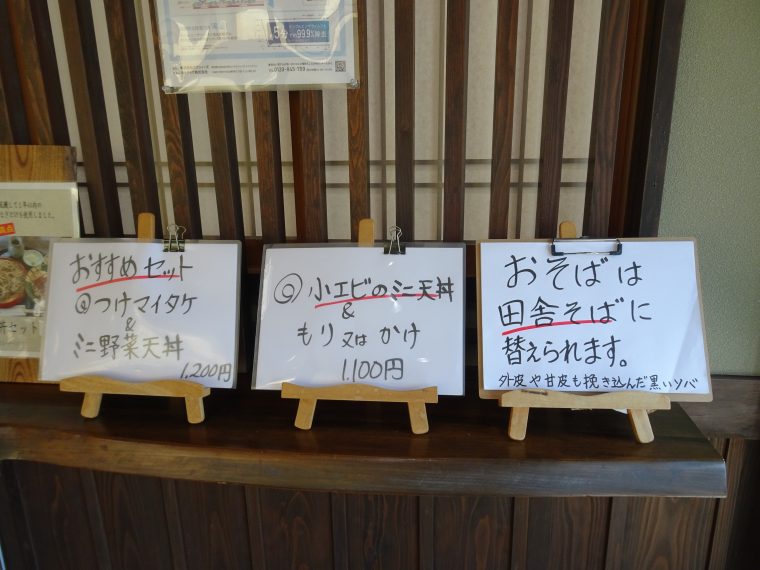 5分
99.9%除去
おすすめセット
@つけマイタケ
&
ミニ野菜天丼
1,200円
◎小エビのミニ天丼
&
もり又はかけ
1,100円
おそばは
田舎そばに
替えられます。
外皮や甘皮も挽き込んだ黒いソバ